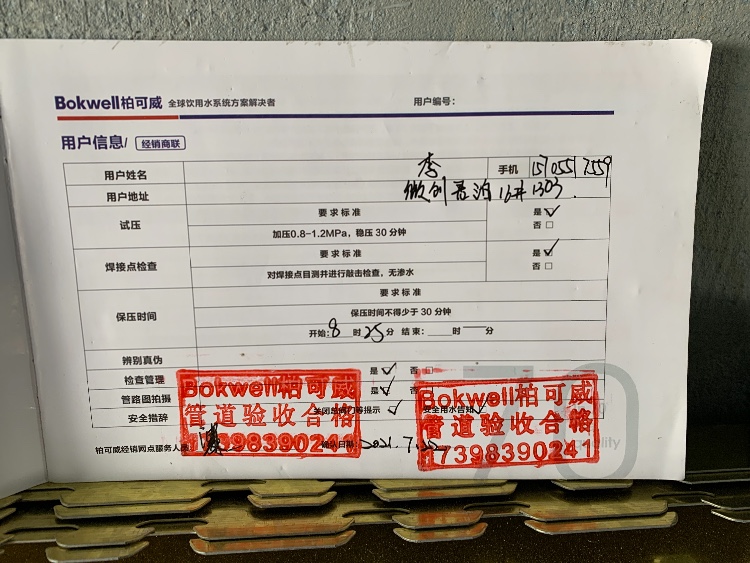 Bokwell柏可威 全球饮用水系统方案解决者 用户编号：
用户信息/ 经销商联
用户姓名 李 手机 15705517559
用户地址 16# 1303.
试压 要求标准 是☑
加压0.8-1.2MPa，稳压30分钟 否□
焊接点检查 要求标准 是☑
对焊接点目测并进行敲击检查，无渗水 否□
保压时间 要求标准
保压时间不得少于30分钟
开始：8时25分 结束： 时 分
辨别真伪
检查管理 是☑ 否□
管路图拍摄 是☑ 否□
安全措辞 等提示 ✓ 安全用水告知 ✓
Bokwell柏可威
管道验收合格
17398390241
Bokwell柏可威
管道验收合格
17398390241
柏可威经销网点服务人员： 确认日期：2021.7.25
70